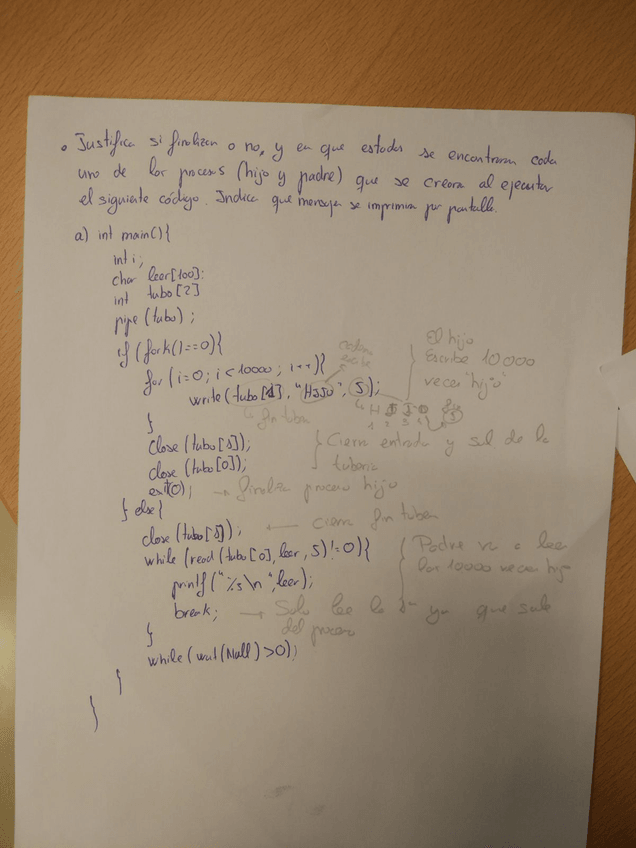 • Justifica si finalizan o no, y en que estados se encontraran cada
uno de los procesos (hijo y padre) que se creara al ejecutar
el siguiente código. Indica que mensajes se imprimira por pantalla.
a) int main(){
int i;
char leer[100];
int tubo[2]
pipe (tubo) ;
if (fork()==0){
for (i=0; i<10000 ; i++){
write (tubo[1], "HIJO", 5);
}
close (tubo[1]);
close (tubo[0]);
exit(0);
} else{
close (tubo[1]);
while (read (tubo[0], leer, 5) != 0){
printf ("%s\n", leer);
break;
}
while (wait (Null) >0);
}
}
El hijo
Escribe 10000
veces "hijo"
fin tuberia
Cierra entrada y sal de la
tuberia
→ finaliza proceso hijo
← cierra fin tuberia
Padre va a leer
las 10000 veces hijo
→ Solo lee la 1ª ya que sale
del proceso